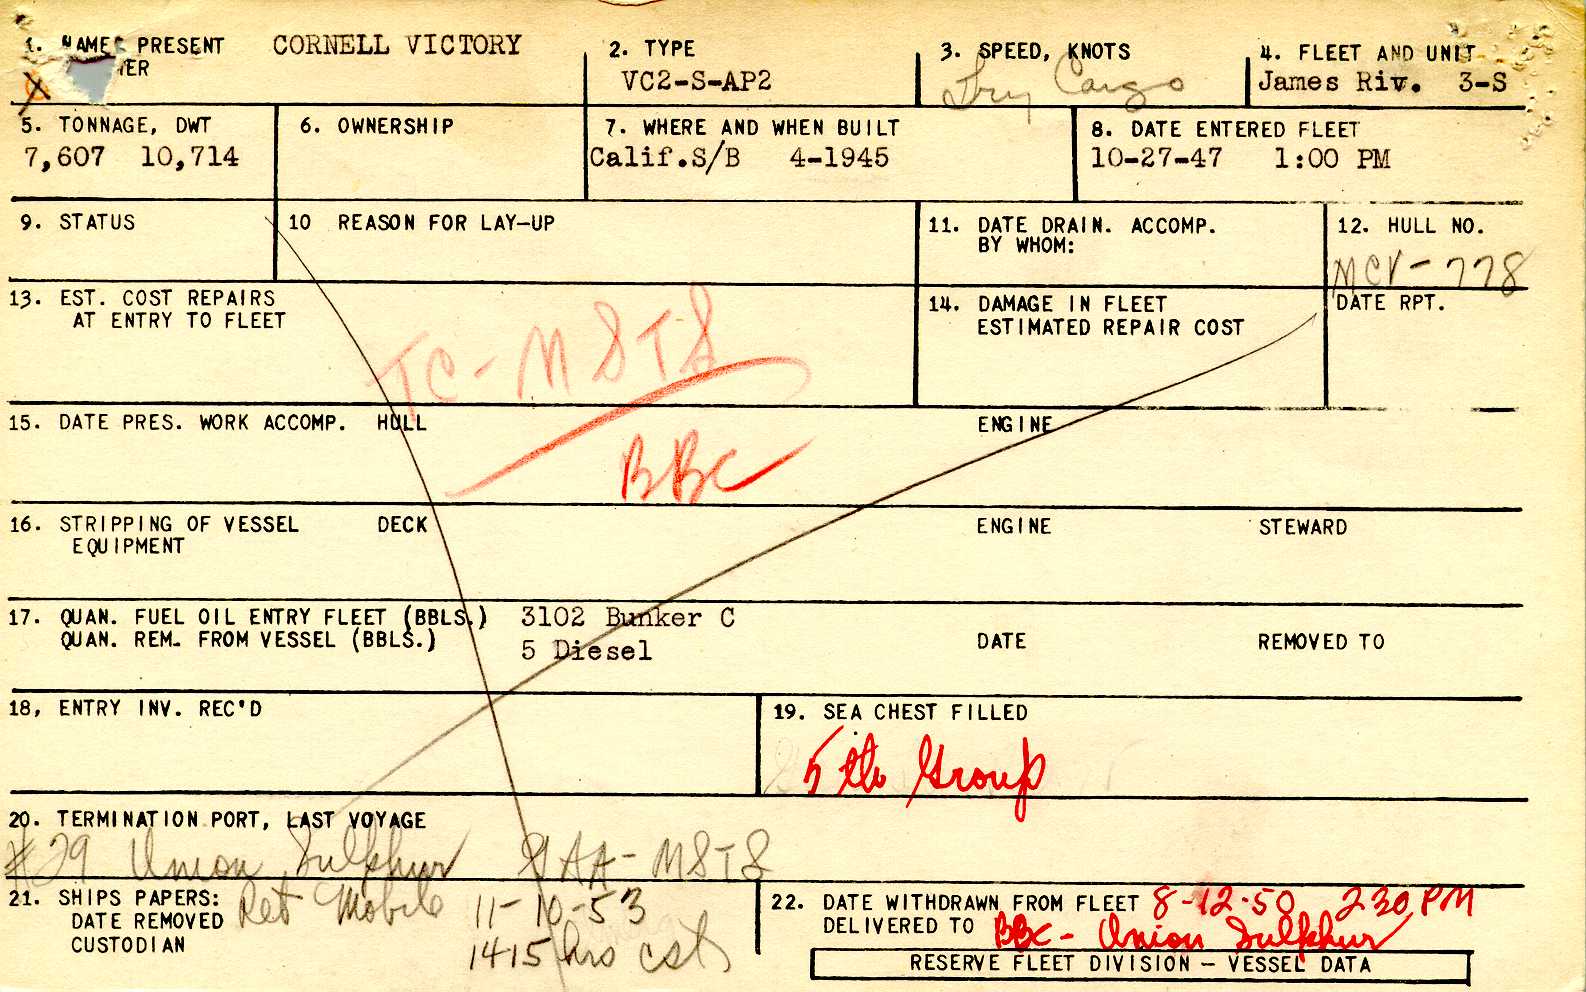 1. NAMES PRESENT CORNELL VICTORY
2. TYPE
VC2-S-AP2
3. SPEED, KNOTS
Dry Cargo
4. FLEET AND UNIT
James Riv. 3-S
X
5. TONNAGE, DWT
7,607 10,714
6. OWNERSHIP
7. WHERE AND WHEN BUILT
Calif.S/B 4-1945
8. DATE ENTERED FLEET
10-27-47 1:00 PM
9. STATUS
10 REASON FOR LAY-UP
11. DATE DRAIN. ACCOMP.
BY WHOM:
12. HULL NO.
MCV-778
13. EST. COST REPAIRS
AT ENTRY TO FLEET
TC-MSTS
BBC
14. DAMAGE IN FLEET
ESTIMATED REPAIR COST
DATE RPT.
15. DATE PRES. WORK ACCOMP. HULL ENGINE
16. STRIPPING OF VESSEL DECK ENGINE STEWARD
EQUIPMENT
17. QUAN. FUEL OIL ENTRY FLEET (BBLS.) 3102 Bunker C
QUAN. REM. FROM VESSEL (BBLS.) 5 Diesel DATE REMOVED TO
18, ENTRY INV. REC'D
19. SEA CHEST FILLED
5th Group
20. TERMINATION PORT, LAST VOYAGE
#29 Union Sulphur GAA-MSTS
21. SHIPS PAPERS:
DATE REMOVED
CUSTODIAN
Ret Mobile 11-10-53
1415 hrs cst
22. DATE WITHDRAWN FROM FLEET 8-12-50 230 PM
DELIVERED TO BBC- Union Sulphur
RESERVE FLEET DIVISION – VESSEL DATA